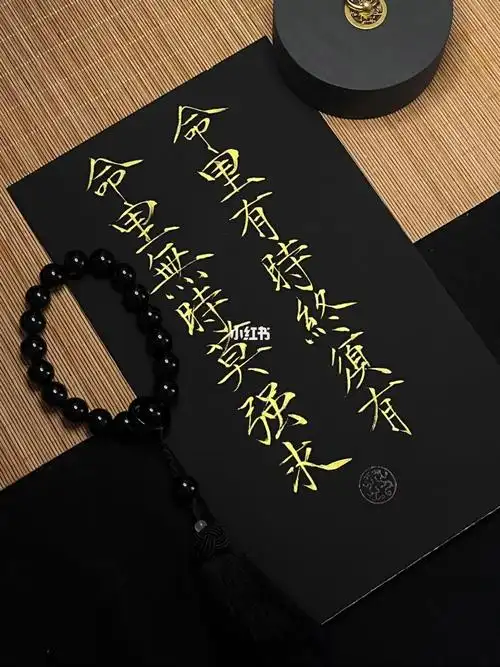 命里有時終須有
命里無時莫强求
小红书